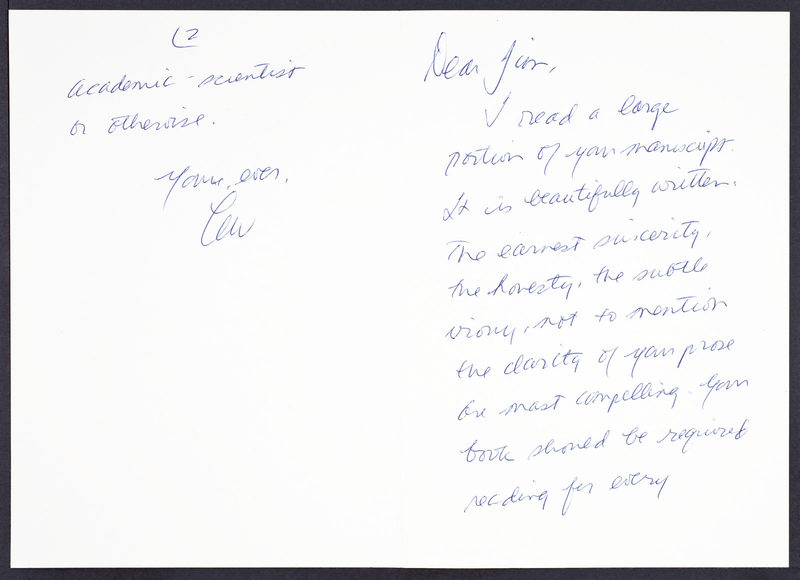 Dear Jim,
I read a large
portion of your manuscript.
It is beautifully written.
The earnest sincerity,
the honesty, the subtle
irony, not to mention
the clarity of your prose
are most compelling. Your
book should be required
reading for every
(2
academic-scientist
or otherwise.
Yours, ever,